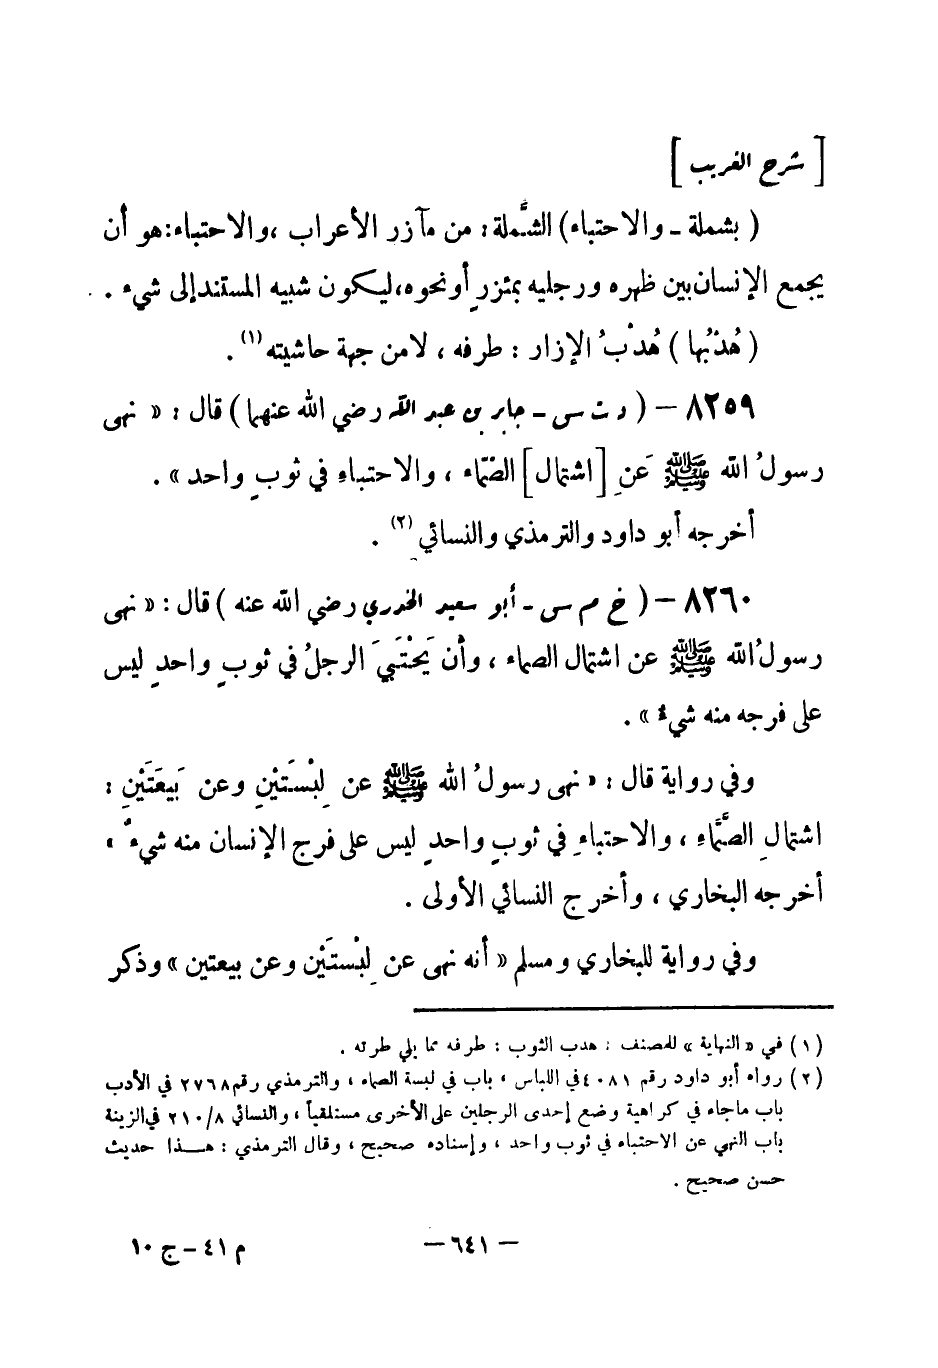 [ شرح الغريب ]
( بشملة ـ والاحتباء) الشَّملة : من مآزر الأعراب ،والاحتباء:هو أن
يجمع الإنسان بين ظهره ورجليه بمئزرٍ أونحوه،ليكون شبيه المستند إلى شيء .
( هُدْبُها ) هُدْبُ الإزار : طرفه ، لامن جهة حاشيته (١) .
٨٢٥٩ – ( د ت س - جابر بن عبد الله رضي الله عنهما ) قال : « نهى
رسولُ الله ﷺ عَنِ [ اشتمال ] الصَّماء ، والاحتباءِ في ثوبٍ واحد » .
أخرجه أبو داود والترمذي والنسائي (٢) .
٨٢٦٠ – ( خ م س - أبو سعيد الخدري رضي الله عنه ) قال : « نهى
رسولُ الله ﷺ عن اشتمال الصماء ، وأن يَحْتَبيَ الرجلُ في ثوبٍ واحدٍ ليس
على فرجه منه شيء » .
وفي رواية قال : « نهى رسولُ الله ﷺ عن لِبْسَتَيْنِ وعن بَيعَتَيْنِ :
اشتمالِ الصَّمَّاءِ ، والاحتباءِ في ثوبٍ واحدٍ ليس على فرج الإنسان منه شيءٌ »
أخرجه البخاري ، وأخرج النسائي الأولى .
وفي رواية للبخاري ومسلم « أنه نهى عن لِبْستَيْن وعن بيعتين » وذكر
(١) في « النهاية » للمصنف : هدب الثوب : طرفه مما يلي طرته .
(٢) رواه أبو داود رقم ٤٠٨١ في اللباس ، باب في لبسة الصماء ، والترمذي رقم ٢٧٦٨ في الأدب
باب ماجاء في كراهية وضع إحدى الرجلين على الأخرى مستلقياً ، والنسائي ٢١٠/٨ في الزينة
باب النهي عن الاحتباء في ثوب واحد ، وإسناده صحيح ، وقال الترمذي : هــذا حديث
حسن صحيح .
– ٦٤١ –
م ٤١ – ج ١٠